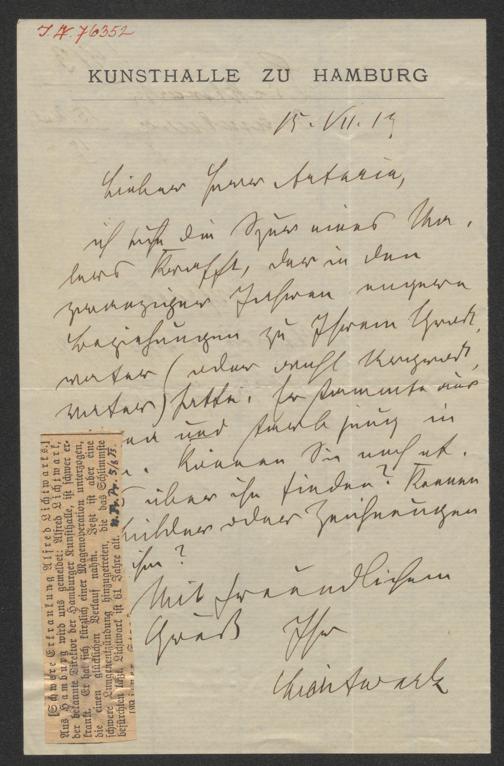 J.N. 76352
KUNSTHALLE ZU HAMBURG
15. VII. 1
Lieber Herr Artaria,
ich suche die Spur eines Ma-
lers Krafft, der in den
zwanziger Jahren engere
Beziehungen zu Ihrem Groß-
vater (oder wohl
vater) hatte. Er stammte aus
und starb jung in
. Können Sie noch et.
über ihn finden? Kennen
Bilder oder Zeichnungen
ihm?
Mit freundlichem
Gruß Ihr
Lichtwark
[Schwere Erkrankung Alfred Lichtwarks.]
Aus Hamburg wird uns gemeldet: Alfred Lichtwark,
der bekannte Direktor der Hamburger Kunsthalle, ist schwer er-
krankt. Er hat sich kürzlich einer Magenoperation unterzogen,
die einen glücklichen Verlauf nahm. Jetzt ist aber eine
schwere Lungenentzündung hinzugetreten, die das Schlimmste
befürchten läßt. Lichtwark ist 61 Jahre alt.